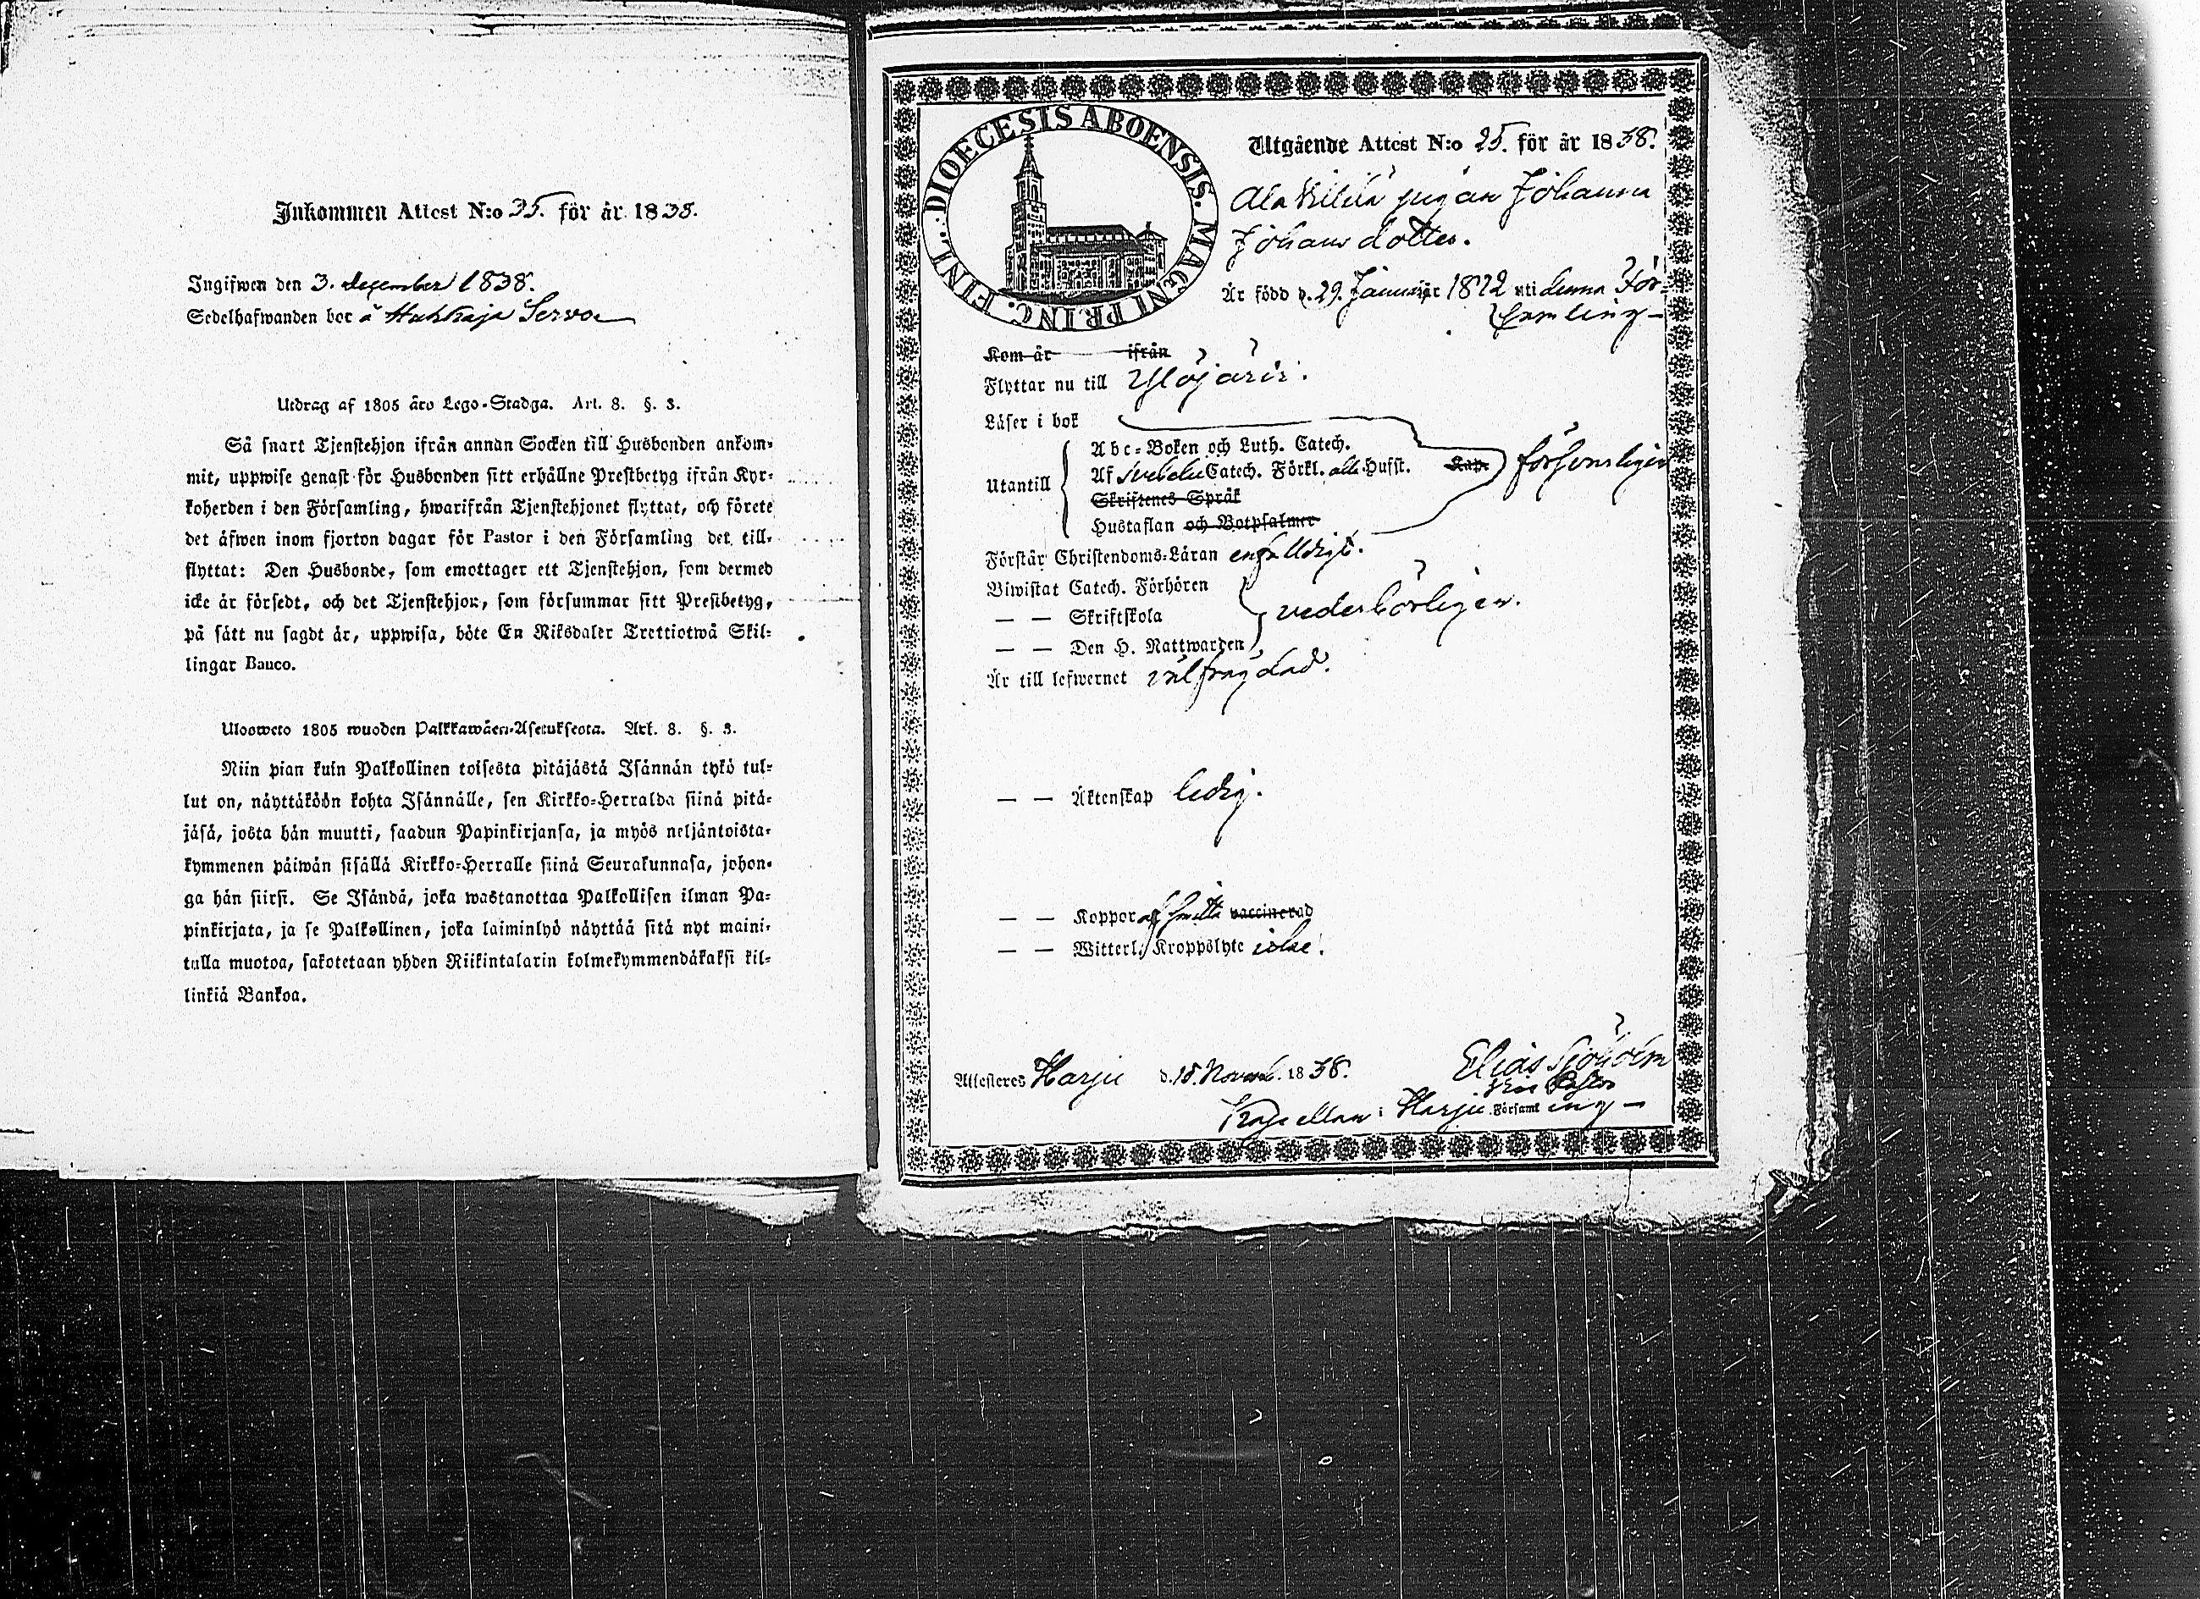 Inkommen Attest N:o 35. för år 1838.
Ingifwen den 3. december 1838.
Sedelhafwanden bor å Hukkaja Serwo
Utdrag af 1805 års Lego-Stadga. Art. 8. §. 3.
Så snart Tjenstehjon ifrån annan Socken till Husbonden ankom-
mit, uppwise genast för Husbonden sitt erhållne Prestbetyg ifrån Kyr-
koherden i den Församling, hwarifrån Tjenstehjonet flyttat, och förete
det äfwen inom fjorton dagar för Pastor i den Församling det till-
flyttat: Den Husbonde, som emottager ett Tjenstehjon, som dermed
icke är försedt, och det Tjenstehjon, som försummar sitt Prestbetyg,
på sätt nu sagdt är, uppwisa, böte En Riksdaler Trettiotwå Skil-
lingar Banco.
Ulosweto 1805 wuoden Palkkawäen-Asetuksesta. Art. 8. §. 3.
Niin pian kuin Palkollinen toisesta pitäjästä Isännän tykö tul-
lut on, näyttäköön kohta Isännälle, sen Kirkko-Herralda siinä pitä-
jäsä, josta hän muutti, saadun Papinkirjansa, ja myös neljäntoista-
kymmenen päiwän sisällä Kirkko-Herralle siinä Seurakunnasa, johon-
ga hän siirsi. Se Isändä, joka wastanottaa Palkollisen ilman Pa-
pinkirjata, ja se Palkollinen, joka laiminlyö näyttää sitä nyt maini-
tulla muotoa, sakotetaan yhden Riikintalarin kolmekymmendäkaksi kil-
linkiä Bankoa.
DIOECESIS ABOENSIS. MAGNI PRINC. FINL.
Utgående Attest N:o 25. för år 1838.
Ala Kililä pigan Johanna
Johansdotter.
Är född d. 29. Januarii 1822 uti denna För-
samling
Kom år ifrån
Flyttar nu till Ylöjärwi.
Läser i bok
Abc-Boken och Luth. Catech.
Utantill Af Svebelii Catech. Förkl. alla Hufst. Kap. försvarligen
Skriftenes Språk
Hustaflan och Botpsalmer
Förstår Christendoms-Läran enfalldigt.
Biwistat Catech. Förhören
— — Skriftskola vederbörligen.
— — Den H. Nattwarden
Är till lefwernet välfrägdad.
— — Äktenskap ledig.
— — Koppor af smitta vaccinerad
— — Witterl. Kroppslyte icke.
Attesteres Harju d. 18. Novemb. 1838. Elias Sjöholm
Vice Pastor
Kapellan i Harju Församling